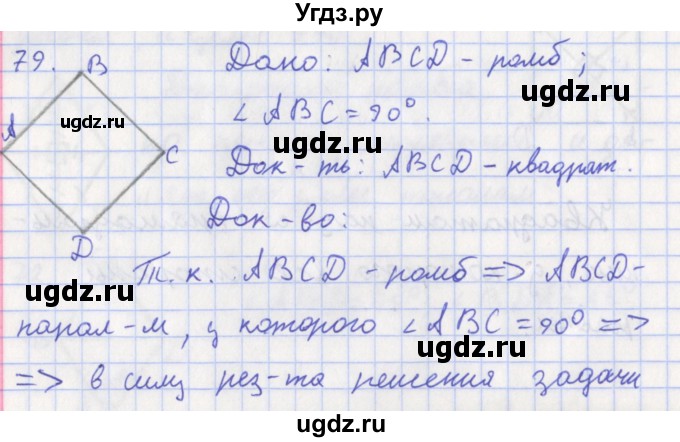 Угдз.ру
79. B Дано: ABCD - ромб;
ugdz.ru
ugdz.ru
A
∠ABC = 90°.
C Док-ть: ABCD - квадрат.
ugdz.ru
Док-во:
D
Т.к. ABCD - ромб => ABCD-
ugdz.ru
парал-м, у которого ∠ABC = 90° =>
ugdz.ru
=> в силу рез-та решения задачи
ugdz.ru